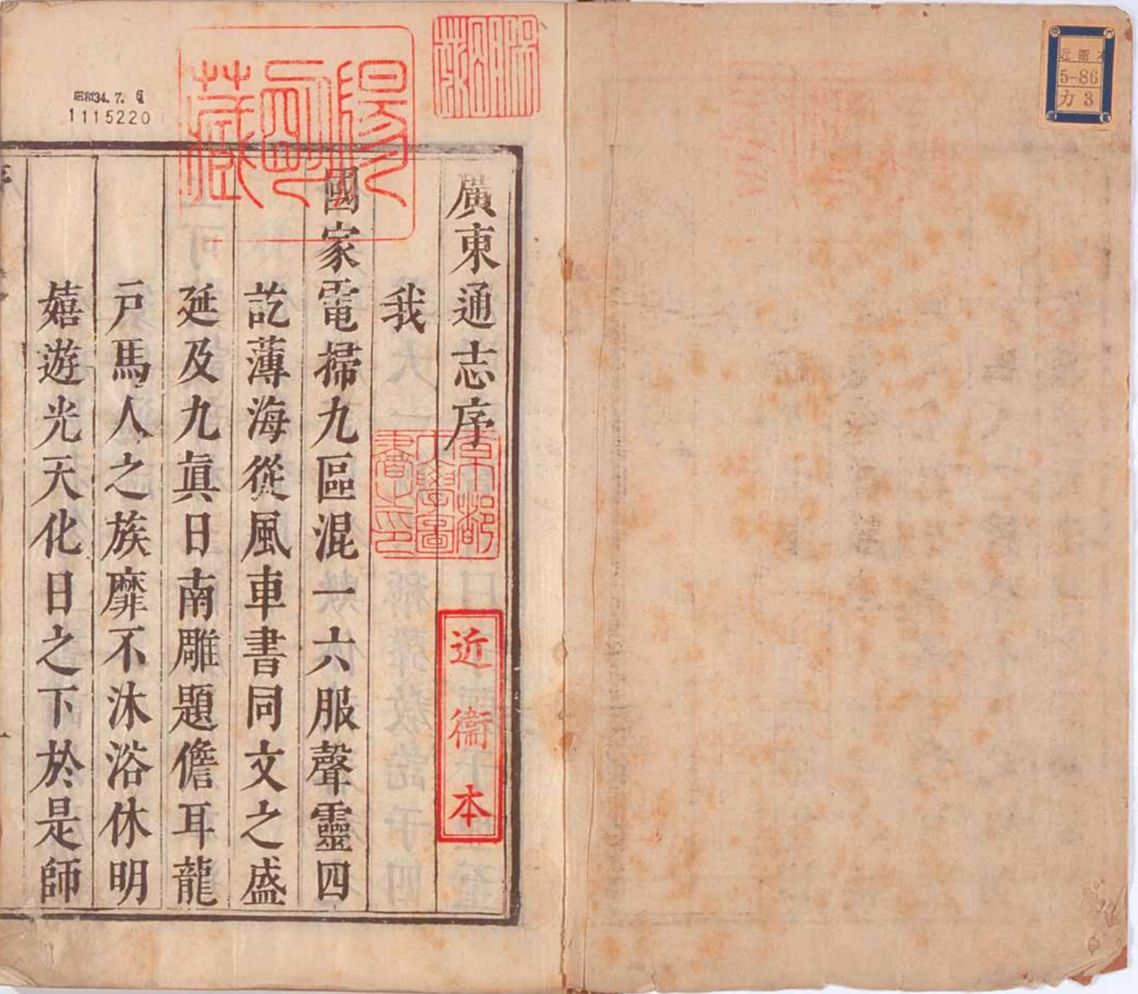 近衞本
5-86
カ 3
廣東通志序
我
國家電掃九區混一六服聲靈四
訖薄海從風車書同文之盛
延及九眞日南雕題儋耳龍
戸馬人之族靡不沐浴休明
嬉遊光天化日之下於是師
陽明藏
陽明藏
京都
大學圖
書之印
近衞本
昭和34.7.6
1115220
序